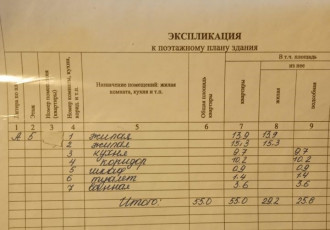 ЭКСПЛИКАЦИЯ
к поэтажному плану здания
Этаж
Назначение помещений: жилая комната, кухня и т.п.
Общая площадь квартиры
В т.ч. площадь
из нее
квартиры
жилая
подсобная
1 2 3 4 5 6 7 8 9
А 5 1 жилая 13,9 13,9
2 жилая 15,3 15,3
3 кухня 9,7 9,7
4 коридор 10,2 10,2
5 шкаф 0,9 0,9
6 туалет 1,4 1,4
7 ванная 3,6 3,6
Итого: 55,0 55,0 29,2 25,8